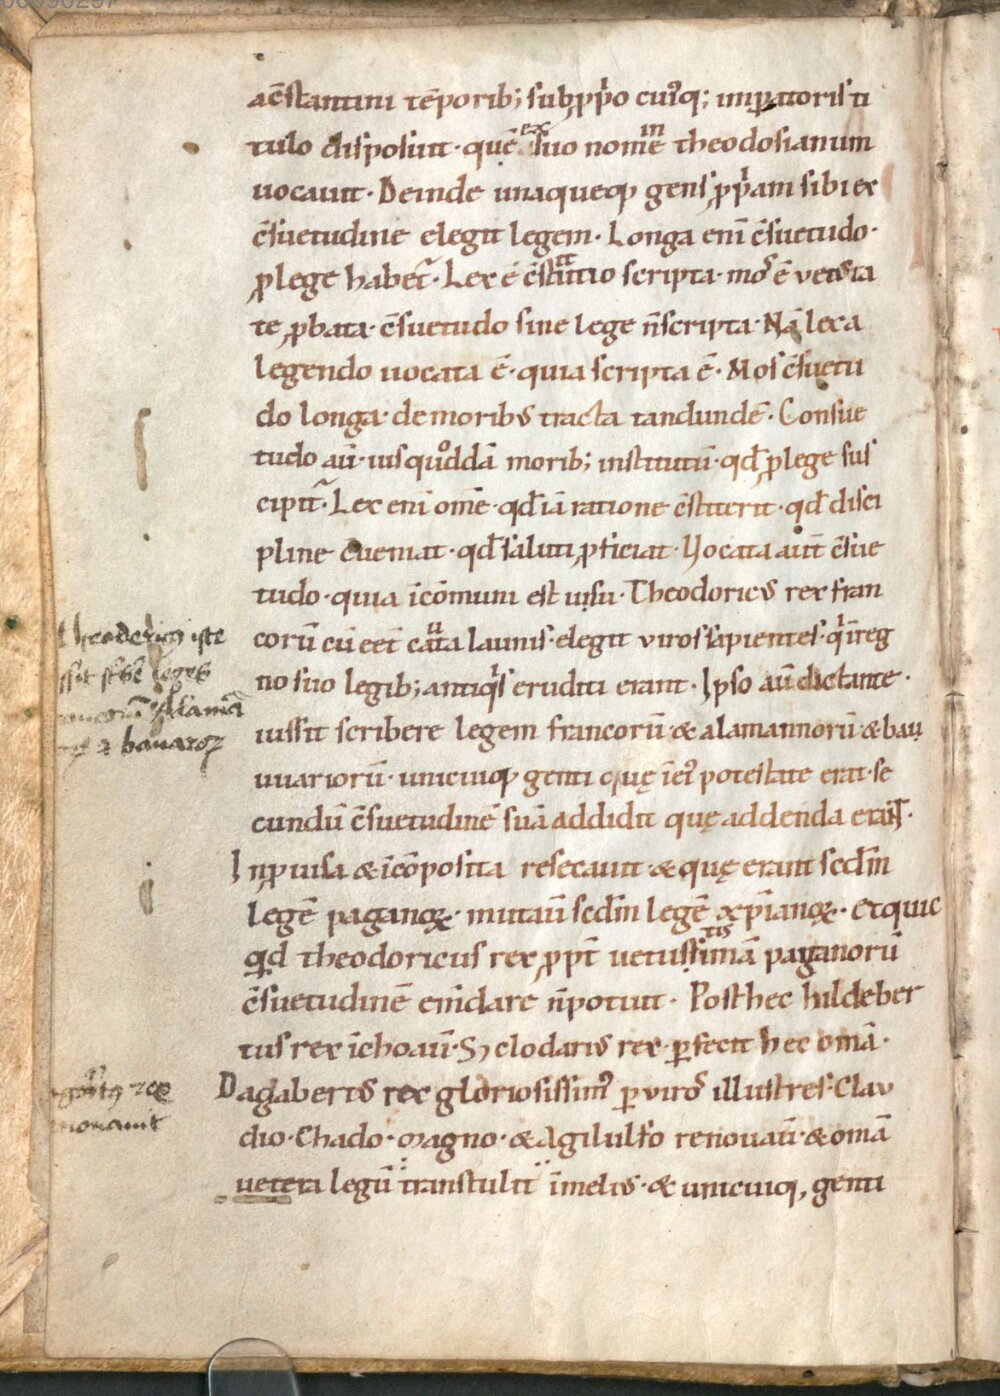 ac̄stantini tēporib; sub ꝓp̄o cui'q; imꝑatoris ti
tulo disposuit · quē ex suo nomine theodosianum
uocauit · Deinde unaqueq; gens ꝓpriam sibi ex
c̄suetudine elegit legem · Longa enī c̄suetudo ·
ꝓ lege habet᷑ · Lex ē c̄stitutio scripta · mos ē vetusta
te ꝓbata · c̄suetudo sine lege n̄ scripta · Nā lex a
legendo uocata ē · quia scripta ē · Mos c̄suetu
do longa · de moribus tracta tandundē · Consue
tudo aū · ius quoddā morib; institutū · qđ ꝓ lege sus
cipit᷑ · Lex enī omē · qđ iā ratione c̄stiterit · qđ disci
pline cueniat · qđ saluti ꝓficiat · Vocata autē c̄sue
tudo · quia ī cōmuni est usu · Theodoricus rex fran
corū cū eēt catalaunis · elegit viros sapientes · qi ī reg
no suo legib; antiqis eruditi erant · Ipso aū dictante ·
iussit scribere legem francorū & alamannorū & baiu
uuariorū · unicuiq; genti quę ī ei' potestate erat · se
cundū c̄suetudinē suā addidit quę addenda erāt ·
Inprouisa & īcōposita resecauit · & quę erant secđm
legē paganoꝝ · mutaū secđm legē xp̄ianoꝝ · Et quic
qđ theodoricus rex ꝓpt̄ uetustissimā paganorū
c̄suetudinē em̄dare n̄ potuit · Post hec hildeber
tus rex īchoaū · Sȝ clodarius rex · ꝑfecit hec omā ·
Dagabertus rex gloriosissim' ꝑ viros illustres · Clau
dio · Chado · Magno · & Agilulfo renouaū · & omā
uetera legū transtulit ī melius · & unicuiq; genti
theodericus iste
leges
Alamā
bavaroꝝ
rex